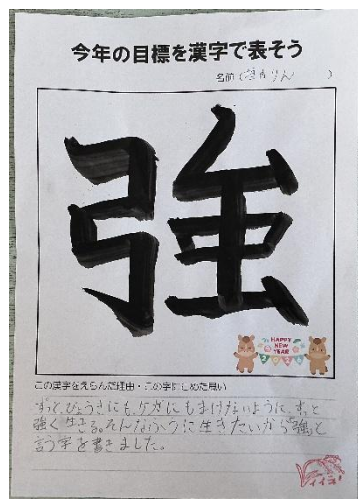 今年の目標を漢字で表そう
名前( りん )
強
HAPPY
NEW
YEAR
2026
この漢字をえらんだ理由・この字にこめた思い
ずっとびょうきにも、ケガにもまけないように、ずっと
強く生きる。そんなふうに生きたいから"強"と
言う字を書きました。